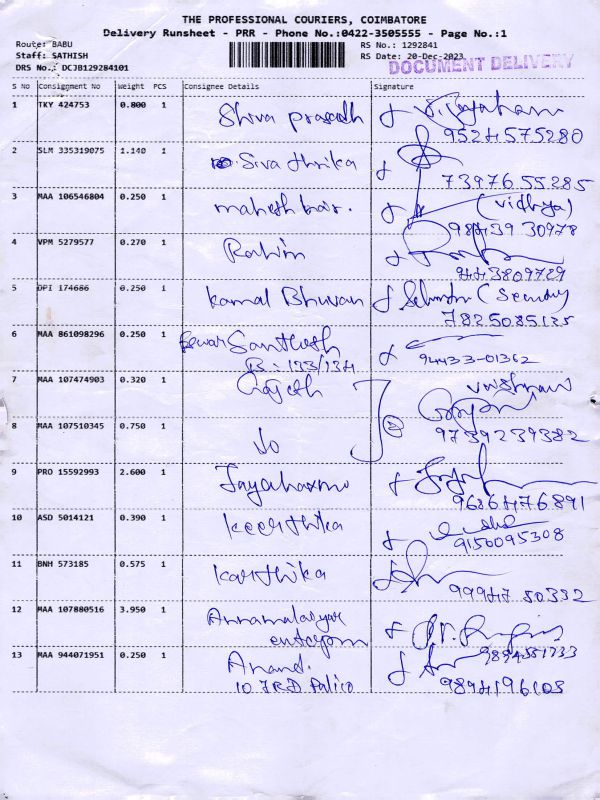 THE PROFESSIONAL COURIERS, COIMBATORE
Delivery Runsheet - PRR - Phone No.:0422-3505555 - Page No.:1
Route: BABU RS No.: 1292841
Staff: SATHISH RS Date: 20-Dec-2023
DRS No.: DCJB129284101 DOCUMENT DELIVERY
S No Consignment No Weight PCS Consignee Details Signature
1 TKY 424753 0.800 1 Shiva prasadh
9524575280
2 SLM 335319075 1.140 1 Siva thrika
73976 55285
3 MAA 106546804 0.250 1 (Vidhya)
98439 30978
4 VPM 5279577 0.270 1 Rahim
9443809729
5 OPI 174686 0.250 1 Kamal Bhuvan
7825085135
6 MAA 861098296 0.250 1 Santhosh
94433-01362
7 MAA 107474903 0.320 1 Rajesh
8 MAA 107510345 0.750 1
9739239382
9 PRO 15592993 2.600 1
9686476891
10 ASD 5014121 0.390 1 Keerthika
9150095308
11 BNH 573185 0.575 1 Karthika
99947 50332
12 MAA 107880516 3.950 1 Annamalaiyar
13 MAA 944071951 0.250 1 Anand.
9894196103